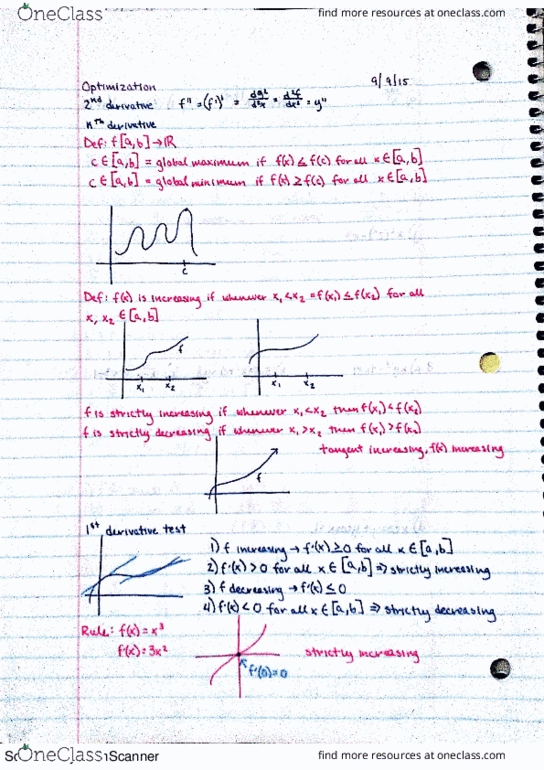 OneClass
find more resources at oneclass.com
9/9/15
Optimization
2nd derivative f'' = (f')' = dy²/d²x = d²f/dx² = y''
nth derivative
Def: f[a,b]→ℝ
c∈[a,b] = global maximum if f(x) ≤ f(c) for all x∈[a,b]
c∈[a,b] = global minimum if f(x) ≥ f(c) for all x∈[a,b]
c
Def: f(x) is increasing if whenever x₁<x₂ = f(x₁) ≤ f(x₂) for all
x, x₂ ∈ [a,b]
f
x₁ x₂
x₁ x₂
f is strictly increasing if whenever x₁<x₂ then f(x₁)<f(x₂)
f is strictly decreasing if whenever x₁>x₂ then f(x₁)>f(x₂)
tangent increasing, f(x) increasing
f
1st derivative test
1) f increasing → f'(x) ≥ 0 for all x∈[a,b]
2) f'(x) > 0 for all x∈[a,b] ⇒ strictly increasing
3) f decreasing → f'(x) ≤ 0
4) f'(x) < 0 for all x∈[a,b] ⇒ strictly decreasing
Rule: f(x) = x³
f'(x) = 3x²
strictly increasing
f'(0)=0
OneClass
Scanner
find more resources at oneclass.com